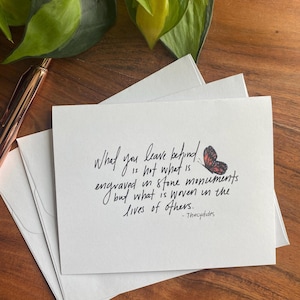 What you leave behind
is not what is
engraved in stone monuments
but what is woven in the
lives of others.
- Thucydides